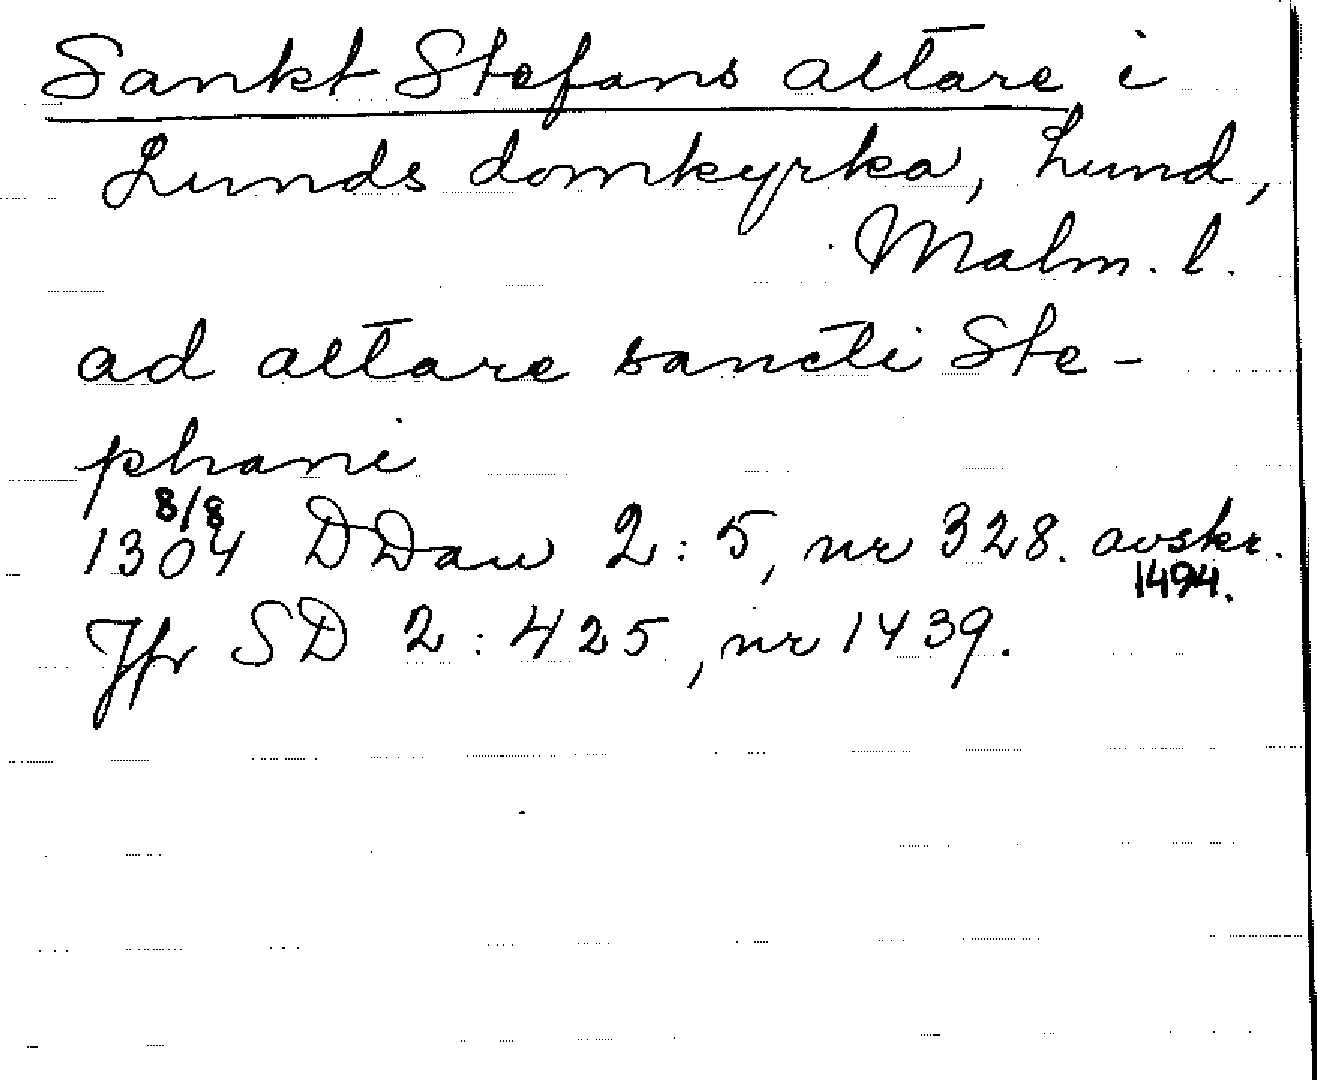 Sankt Stefans altare i
Lunds domkyrka, Lund,
Malm. l.
ad altare sancti Ste-
phani
8/8
1304 DDan 2:5, nr 328. avskr.
1494.
Jfr SD 2:425, nr 1439.